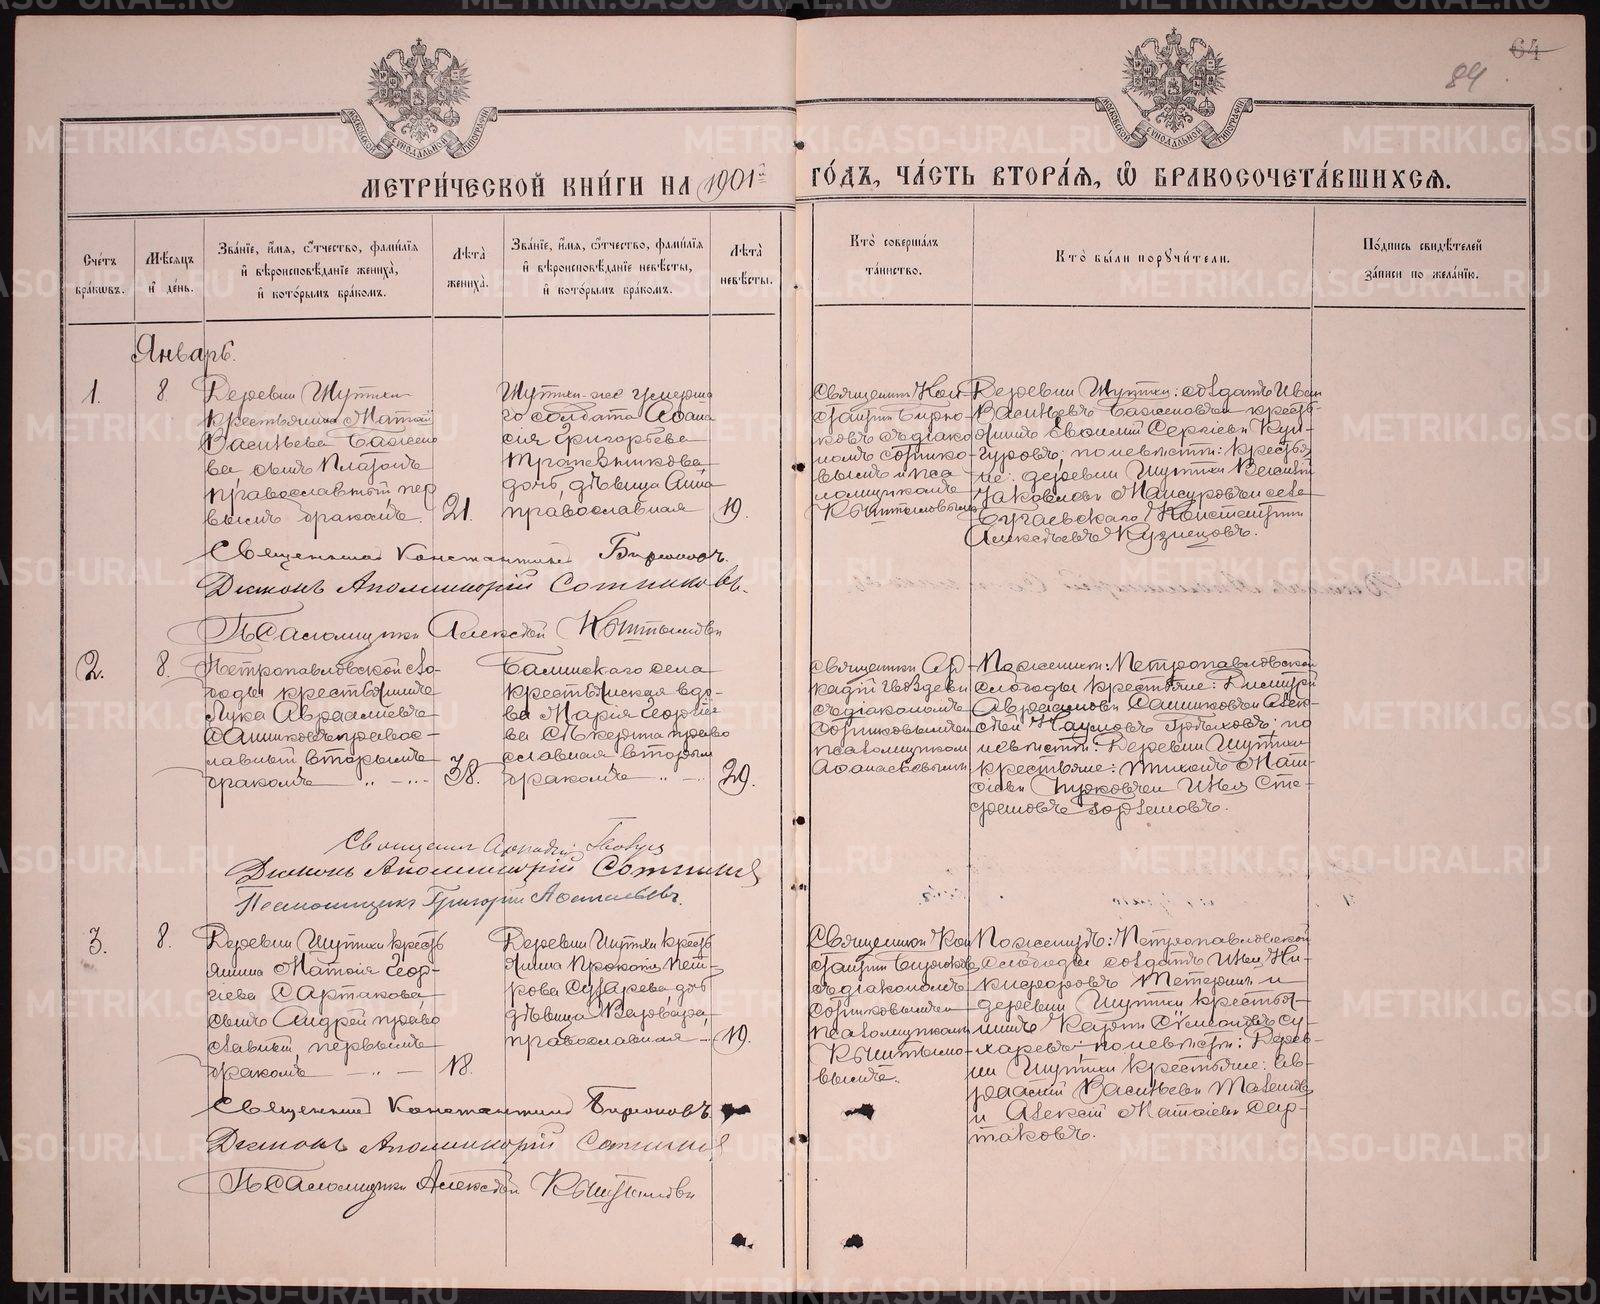 64
84
МЕТРИ́ЧЕСКОЙ КНИ́ГИ НА 1901й ГО́ДЪ, ЧА́СТЬ ВТОРА́Я, Ѡ БРАКОСОЧЕТА́ВШИХСЯ.
Сче́тъ бра́кωвъ.
Мѣ́сяцъ и҆ де́нь.
Зва́нїе, и҆́мя, ѻ҆́тчество, фами́лїя и҆ вѣроисповѣ́данїе жениха̀, и҆ кото́рымъ бра́комъ.
Лѣта̀ жениха̀.
Зва́нїе, и҆́мя, ѻ҆́тчество, фами́лїя и҆ вѣроисповѣ́данїе невѣ́сты, и҆ кото́рымъ бра́комъ.
Лѣта̀ невѣ́сты.
Кто̀ соверша́лъ та́инство.
Кто̀ бы́ли порꙋчи́тели.
По́дпись свидѣ́телей за́писи по жела́нїю.
Январь.
1.
8.
Деревни Шутихи
крестьянина Матѳія
Васильева Бажено
ва сынъ Платонъ
православный пер
вымъ бракомъ.
21.
го солдата Аѳана
сія Григорьева
Трапезникова
дочь, дѣвица Анна
православная
19.
Священникъ Кон
стантинъ Бирю
ковъ съ діако
номъ Сотнико-
вымъ и пса
ломщикомъ
Кыштымовымъ
Деревни Шутихи: солдатъ Иван
Васильевъ Баженовъ и кресть-
янинъ Евѳимій Сергіевъ Кун-
гуровъ; по невѣстѣ: крестья
не: деревни Шутихи Василій
Яковлевъ Мансуровъ и села
Бугаевскаго Константинъ
Алексѣевъ Кузнецовъ.
Священникъ Константинъ Бирюковъ.
Діаконъ Аполлинарій Сотниковъ.
Псаломщикъ Алексѣй Кыштымовъ
2.
8.
Петропавловской сло-
боды крестьянинъ
Лука Авраамiевъ
Санниковъ правос-
лавный вторымъ
бракомъ " -...
38.
Балинскаго села
крестьянская вдо-
ва Марія Георгіе
ва Сѣкерина право
славная вторым
бракомъ " -
29.
Священникъ Ар
кадій Гвоздевъ
съ діакономъ
Сотниковымъ и
псаломщиком
Аѳанасьевымъ
По женихѣ: Петропавловской
слободы крестьяне: Димитрій
Авраамовъ Санниковъ и Алек-
сѣй Наумовъ Грѣховъ; по
невѣстѣ: Деревни Шутихи
крестьяне: Тихонъ Мат-
ѳіевъ Чужовъ и Илья Сте-
фановъ
Священникъ Аркадій Гвоздевъ
Діаконъ Аполлинарій Сотниковъ
Псаломщикъ Григорій Аѳанасьевъ.
3.
8.
Деревни Шутихи кресть
янина Матѳія Геор-
гіева Сартакова
сынъ Андрей право
славный, первымъ
бракомъ - " -
18.
Деревни Шутихи кресть
янина Прокопія Пет-
рова Сухарева дочь
дѣвица Варвара,
православная
19.
Священникъ Кон
стантинъ Бирюковъ
съ діакономъ
Сотниковымъ и
псаломщикомъ
Кыштымо-
вымъ.
По женихѣ: Петропавловской
слободы солдатъ Илья Ни-
кифоровъ Тетеринъ и
деревни Шутихи крестья-
нинъ Карпъ Сѵмеоновъ Су-
харевъ; по невѣстѣ: Дерев-
ни Шутихи крестьяне: Ав-
раамій Васильевъ
и Алексѣй Матѳіевъ Сар-
таковъ.
Священникъ Константинъ Бирюковъ
Діаконъ Аполлинарій Сотниковъ
Псаломщикъ Алексѣй Кыштымовъ
METRIKI.GASO-URAL.RU